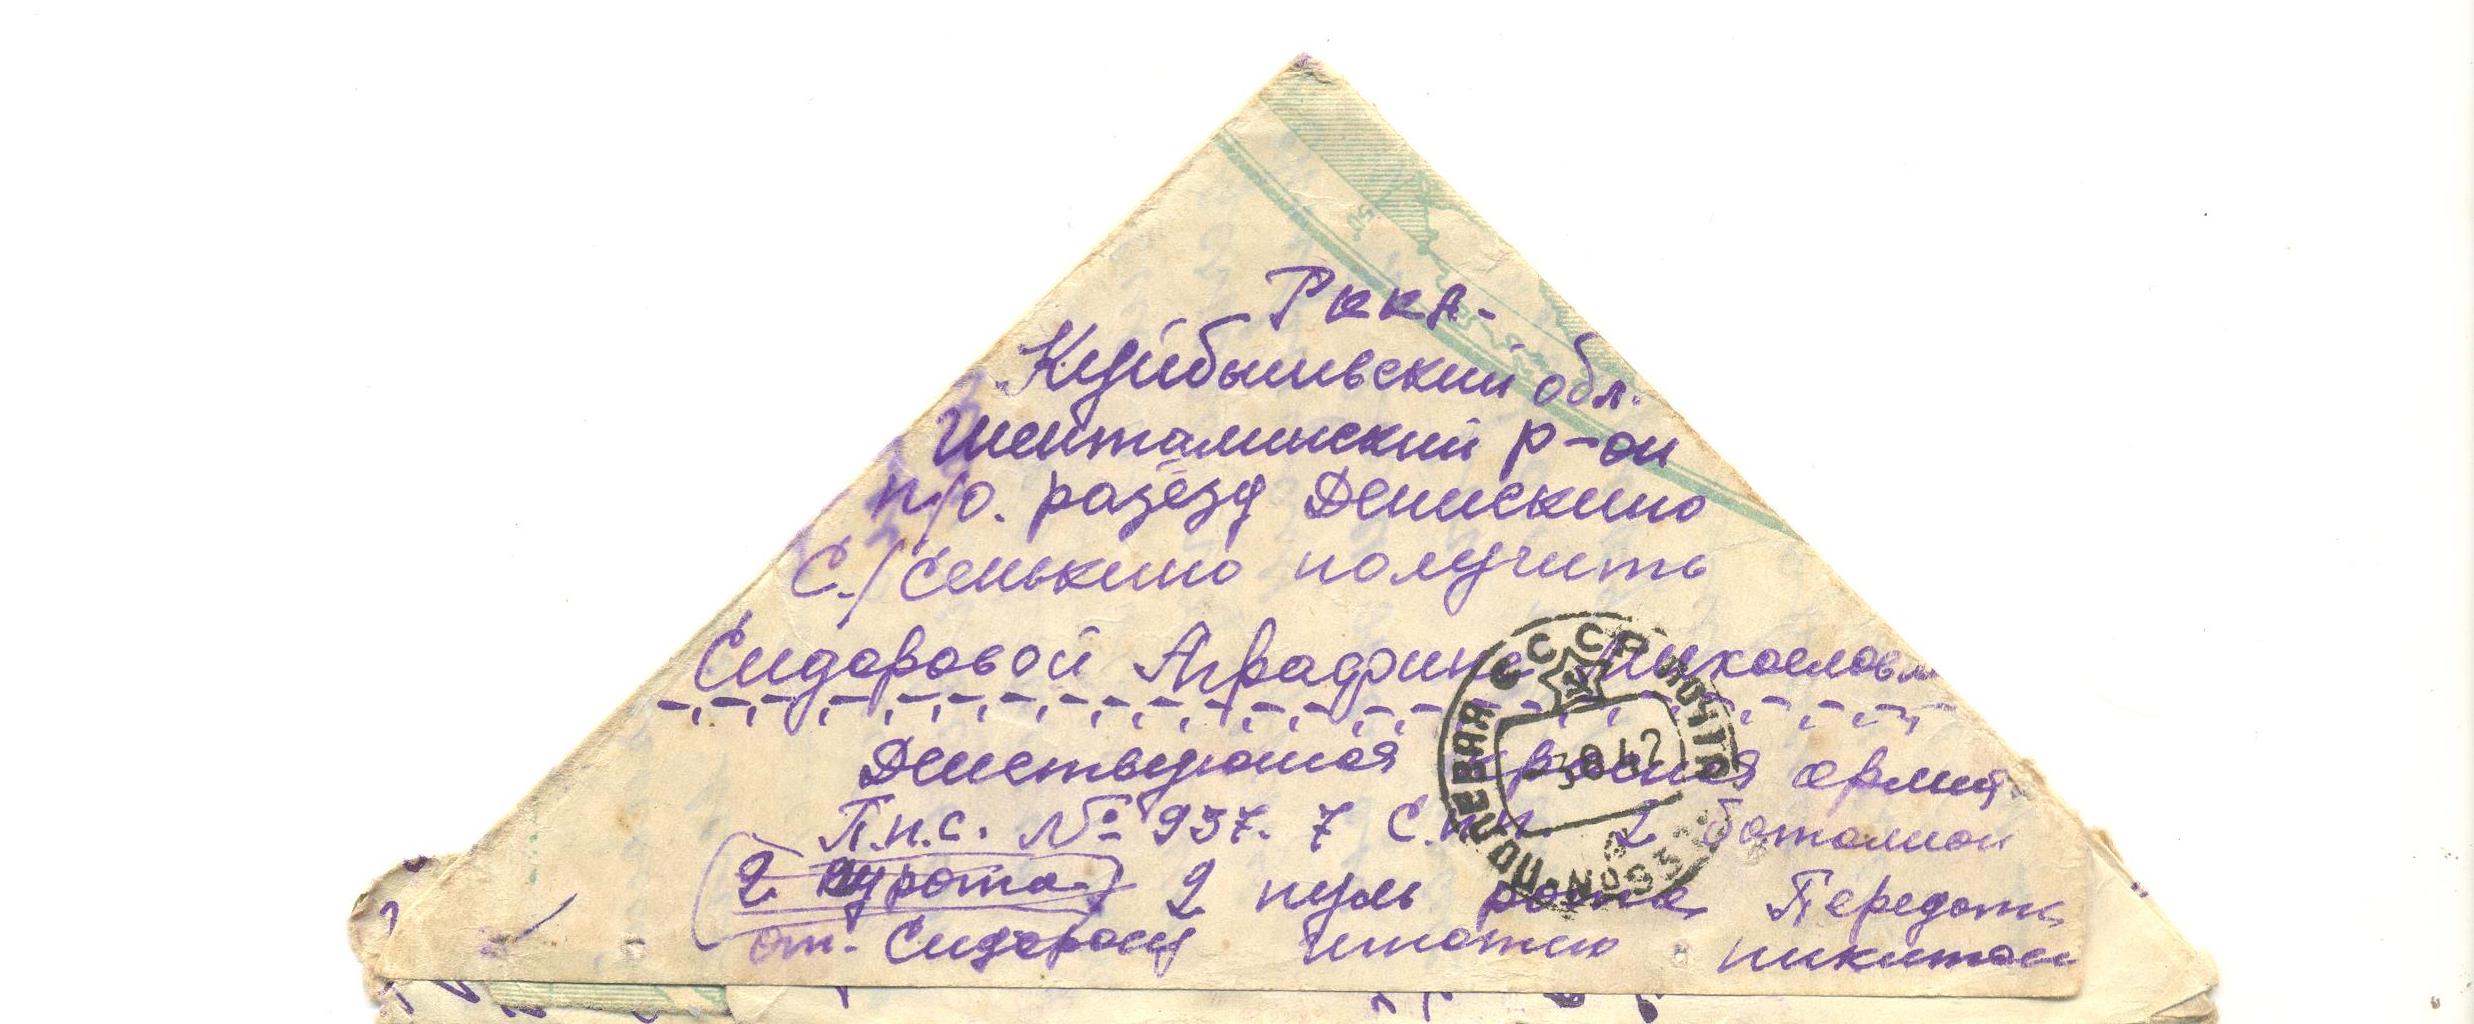 Ркка-
Куйбышевский обл.
Шенталинский р-он
п/о. разъезд Денискино
С./Сенькино получить
Сидоровой Аграфине Михаловн
Действующая красная армия
П.п.с. № 937. 7 С.п. 2 батолион
2 рота 2 пуль рота Передат
от. Сидорову никитои
ПОЛЕВАЯ СССР ПОЧТА
3 8 42